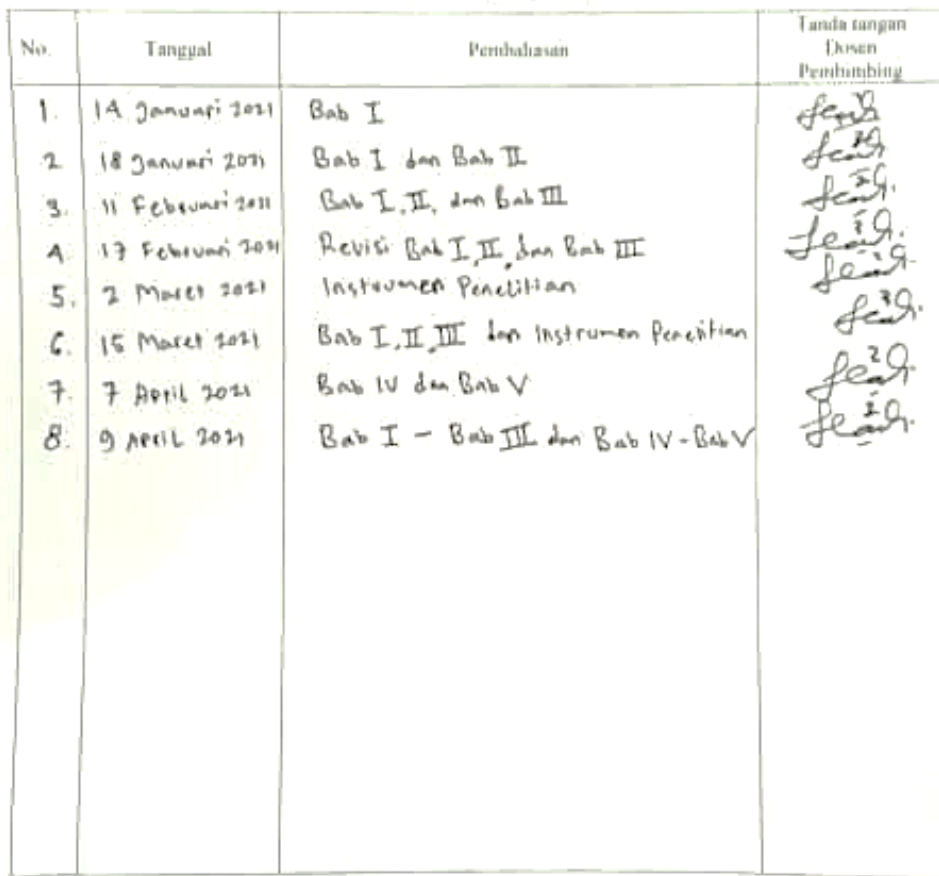 No. Tanggal Pembahasan Tanda tangan
Dosen
Pembimbing
1. 14 Januari 2021 Bab I
2 18 Januari 2021 Bab I dan Bab II
3. 11 Februari 2021 Bab I, II, dan Bab III
4 17 Februari 2021 Revisi Bab I, II, dan Bab III
5. 2 Maret 2021 Instrumen Penelitian
6. 15 Maret 2021 Bab I, II, III dan Instrumen Penelitian
7. 7 April 2021 Bab IV dan Bab V
8. 9 April 2021 Bab I - Bab III dan Bab IV - Bab V